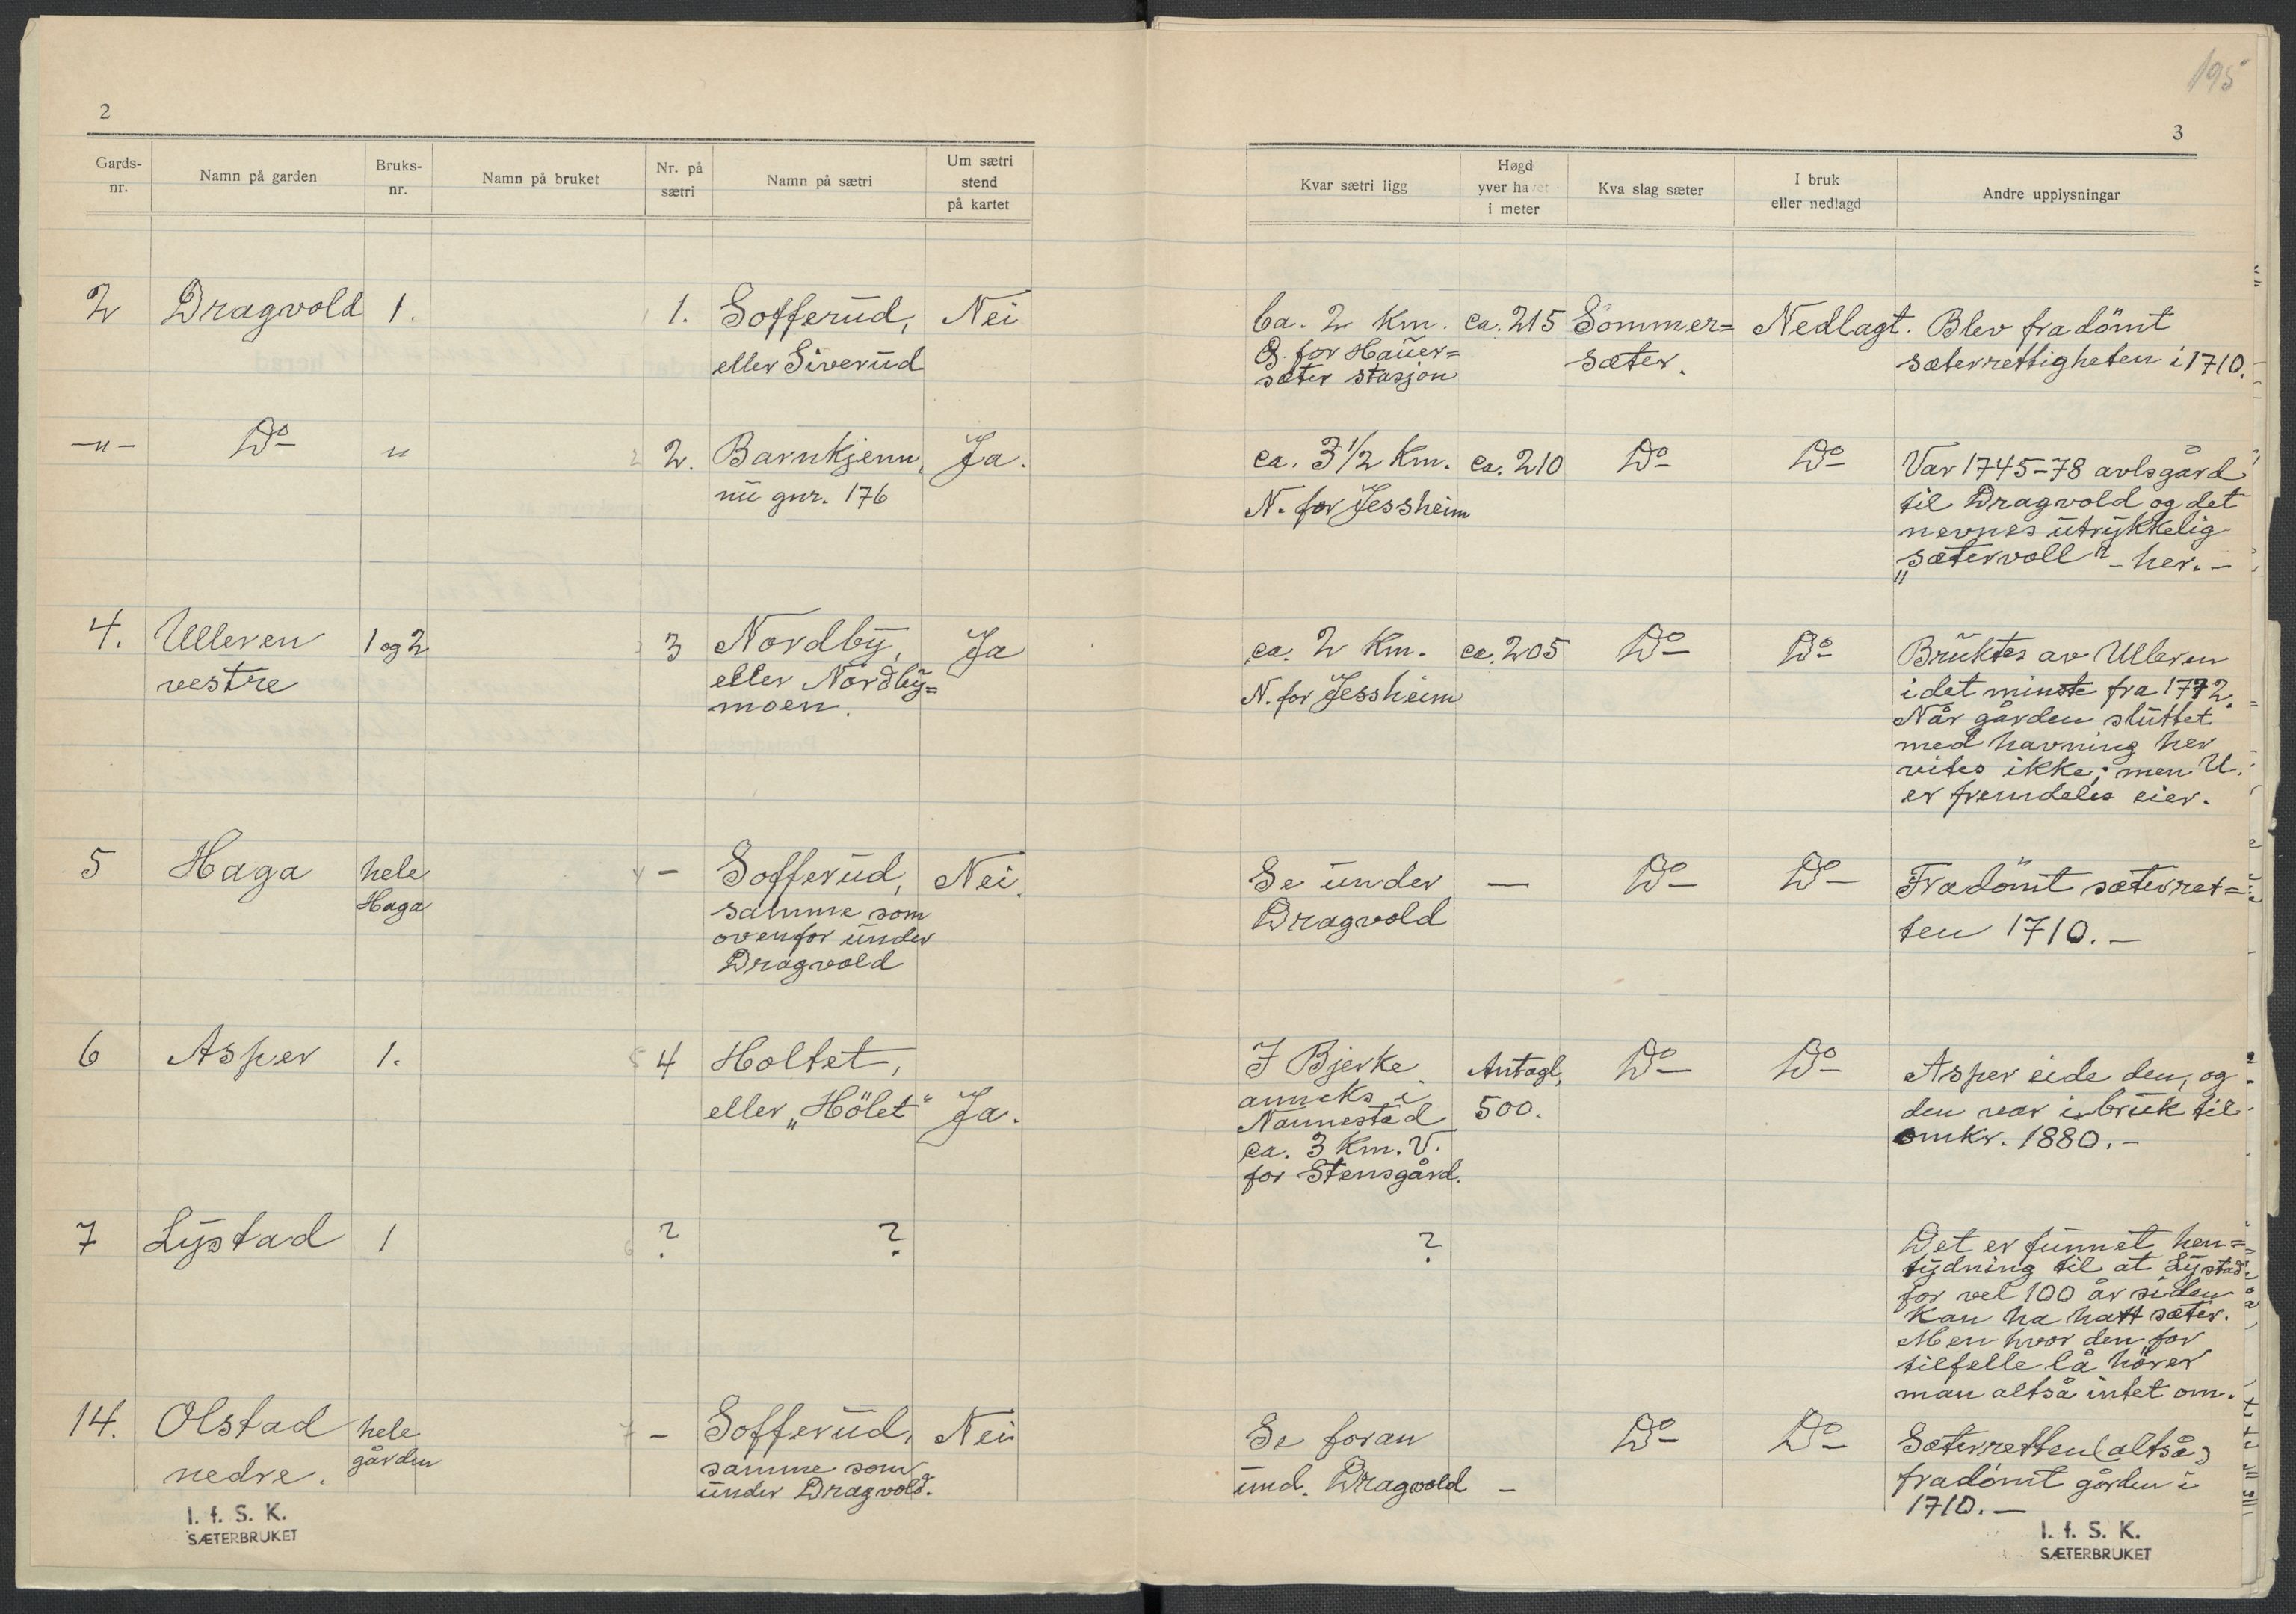 195
2
3
Gards-nr. Namn på garden Bruks-nr. Namn på bruket Nr. på sætri Namn på sætri Um sætri stend på kartet
Kvar sætri ligg Høgd yver havet i meter Kva slag sæter I bruk eller nedlagd Andre upplysningar
2 Dragvold 1. 1. Sofferud, Nei
eller Siverud
Ca. 2 Km. ca. 215 Sommer= Nedlagt. Blev fradömt
Ø. for Hauer= sæter. sæterrettigheten i 1710.
sæter stasjon
—"— Do " 2. Barnkjenn, Ja.
nu gnr. 176
ca. 3 1/2 Km. ca. 210 Do Do Var 1745-78 avlsgård
N. for Jessheim til Dragvold og det
nevnes utrykkelig
„sætervoll" - her. -
4. Ulleren 1 og 2 3 Nordby, Ja
vestre eller Nordby=
moen.
ca. 2 Km. ca. 205 Do Do Bruktes av Ulleren
N. for Jessheim i det minste fra 1772.
Når gården sluttet
med havning her
vites ikke; men U.
er fremdeles eier.
5 Haga hele - Sofferud, Nei.
Haga samme som
ovenfor under
Dragvold
Se under — Do Do Fradömt sæterret=
Dragvold ten 1710. -
6 Asper 1. 4 Holtet,
eller „Hölet" Ja.
I Bjerke Antagl. Do Do Asper eide den, og
anneks i 500. den var i bruk til
Nannestad omkr. 1880. -
ca. 3 Km. V.
for Stensgård.
7 Lystad 1 ? ?
? Det er funnet hen=
tydning til at Lystad
for vel 100 år siden
kan ha hatt sæter.
Men hvor den for
tilfelle lå hörer
man altså intet om.
14. Olstad hele - Sofferud, Nei
nedre. gården samme som
under Dragvold.
Se foran Do Do Sæterretten (altså)
und. Dragvold - fradömt gården i
1710. —
I. f. S. K.
SÆTERBRUKET
I. f. S. K.
SÆTERBRUKET